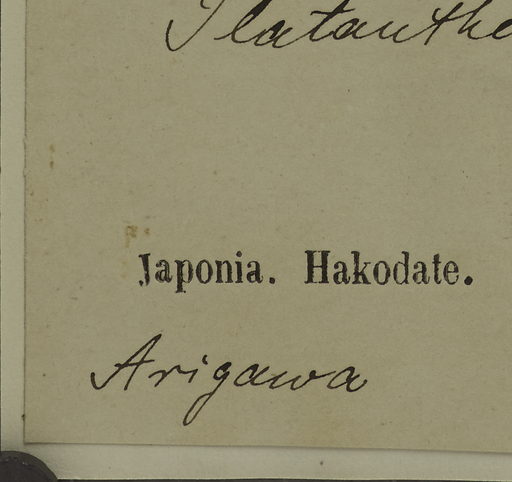 Platanthe
Japonia. Hakodate.
Arigawa